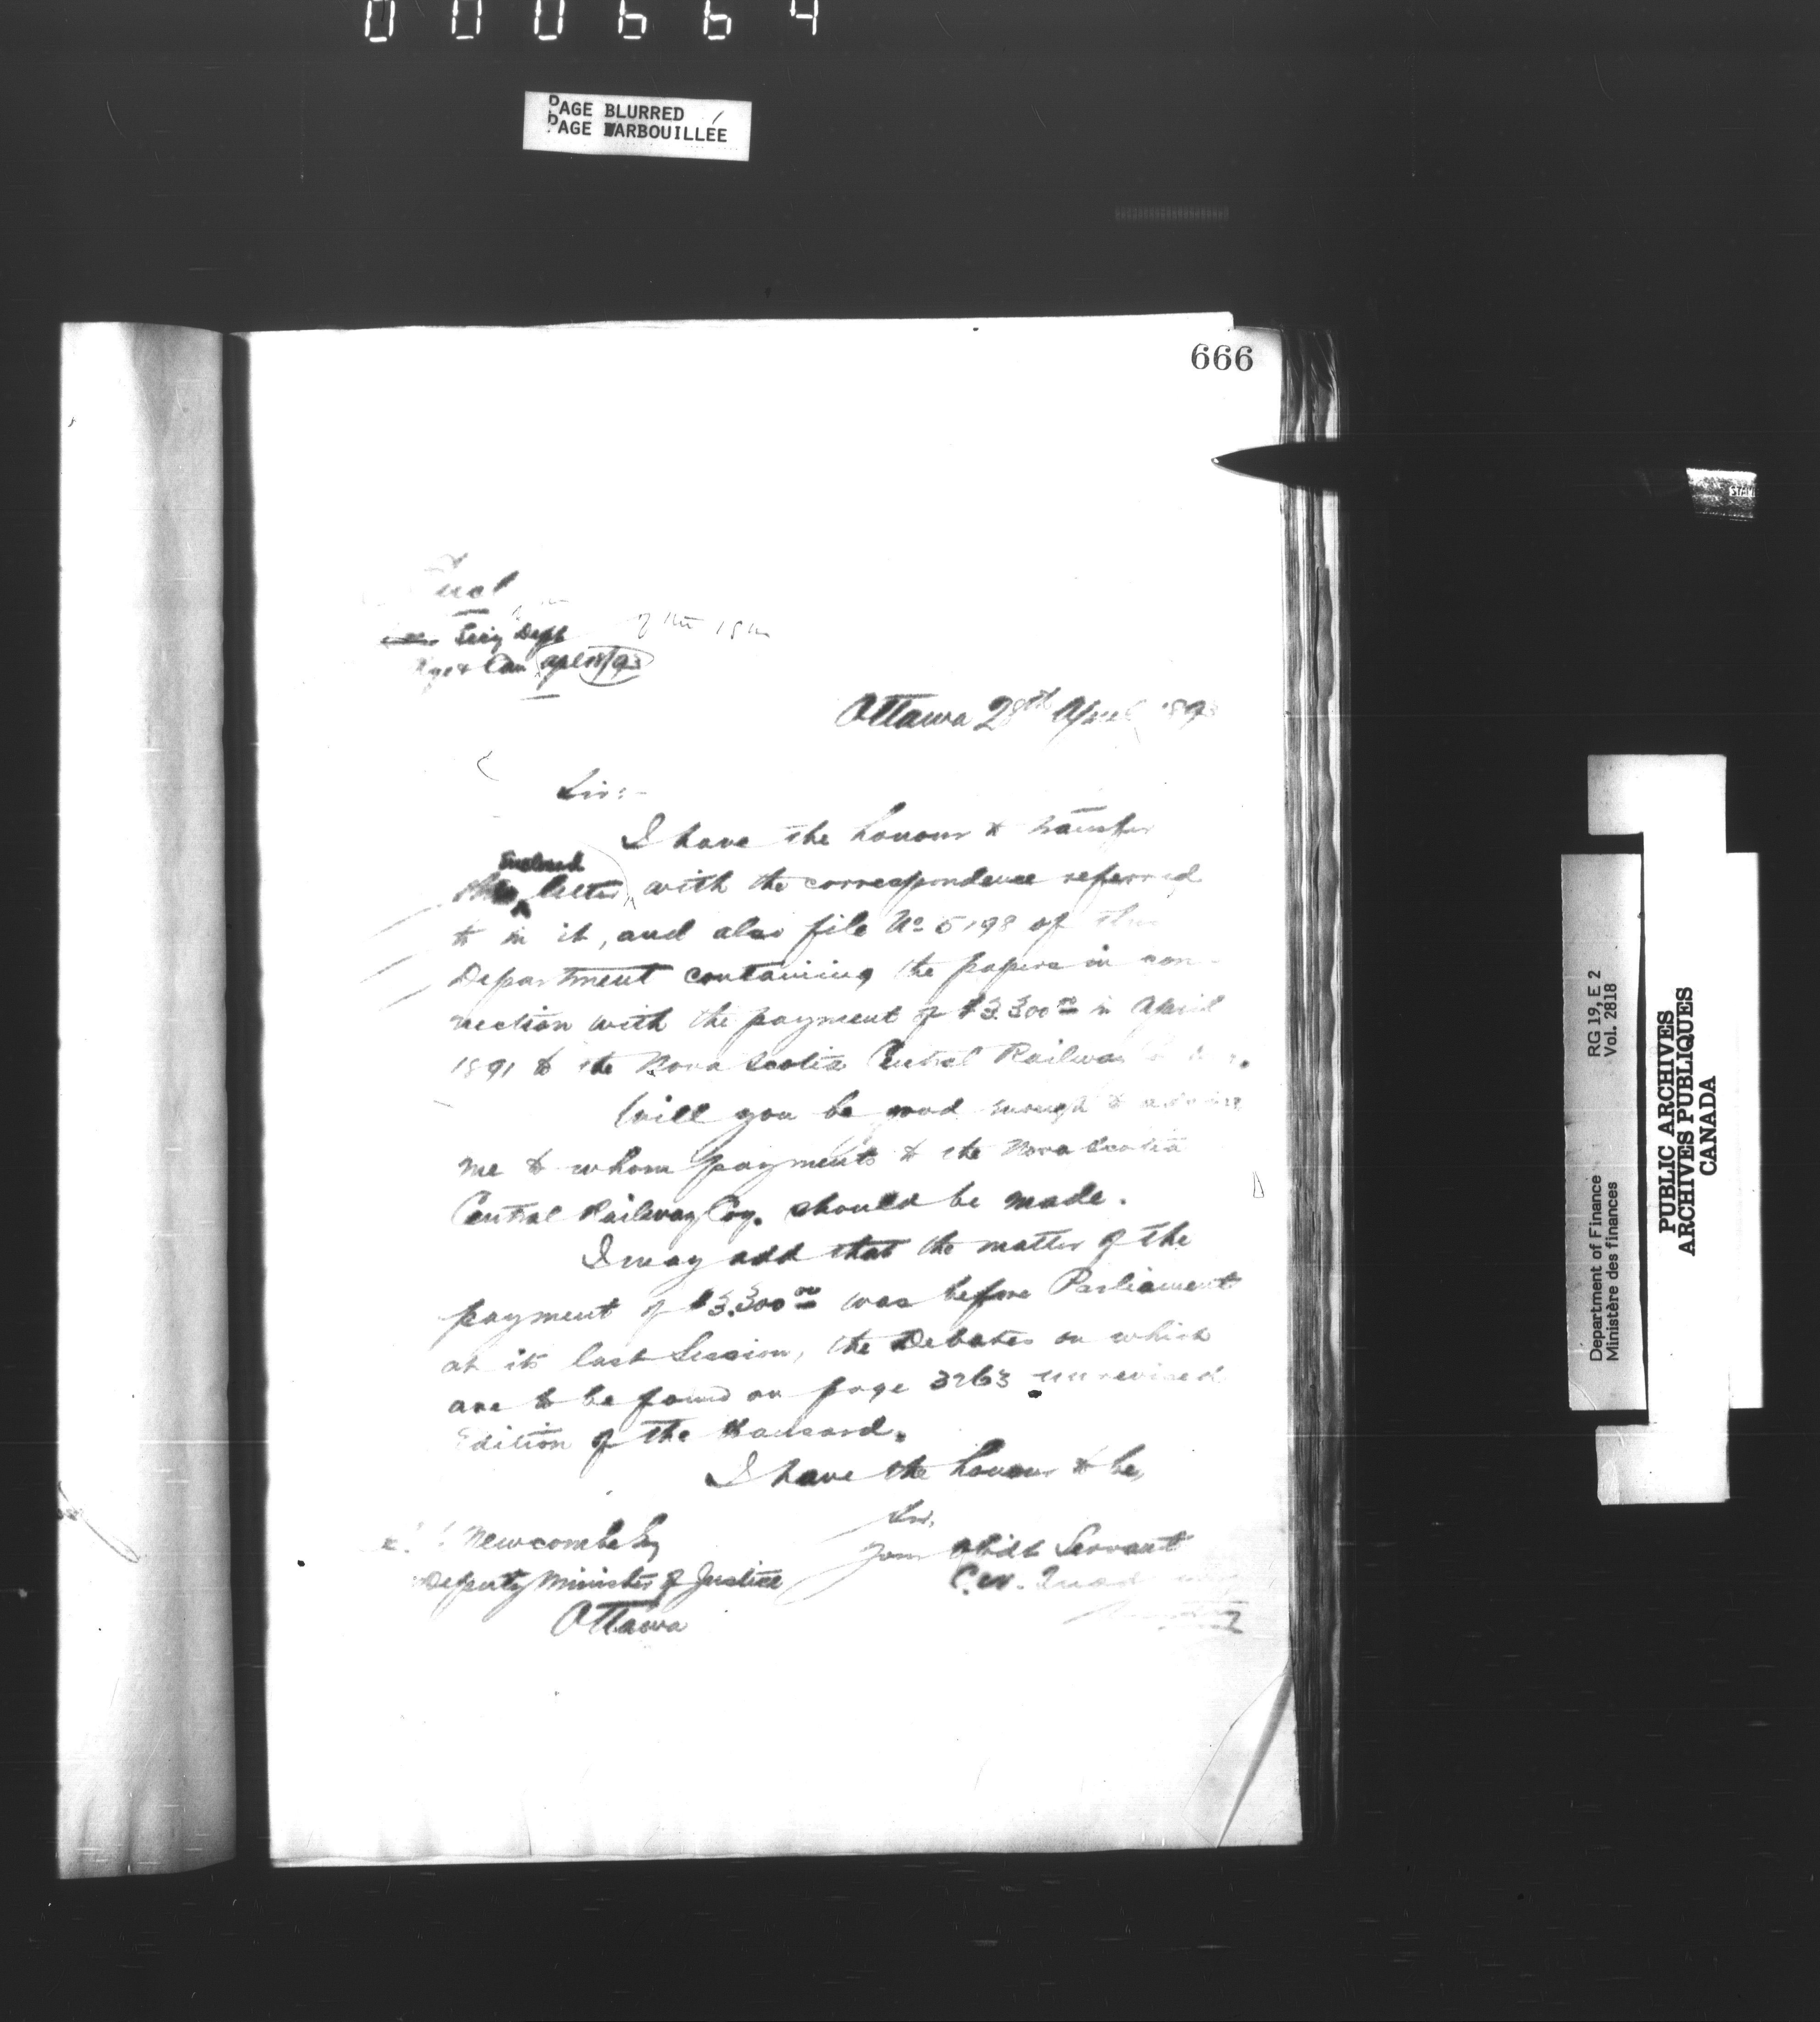 000664
PAGE BLURRED
PAGE BARBOUILLÉE
666
Encl
Secy Dept
Rys & Can
Ottawa 28th April 1893
Sir:-
I have the honour to transfer
Enclosed
the letter, with the correspondence referred
to in it, and also file No 5198 of this
Department containing the papers in con-
nection with the payment of $3.300 00 in April
1891 to the Nova Scotia Central Railway
Will you be good enough to advise
me to whom payments to the Nova Scotia
Central Railway Coy. should be made.
I may add that the matter of the
payment of $3.300 00 was before Parliament
at its last Session, the Debates on which
are to be found on page 3263 unrevised
Edition of the Hansard.
I have the honour to be,
Sir,
Your obdt Servant
Newcombe Esq
Deputy Minister of Justice
Ottawa
STAM
Department of Finance RG 19, E 2
Ministère des finances Vol. 2818
PUBLIC ARCHIVES
ARCHIVES PUBLIQUES
CANADA